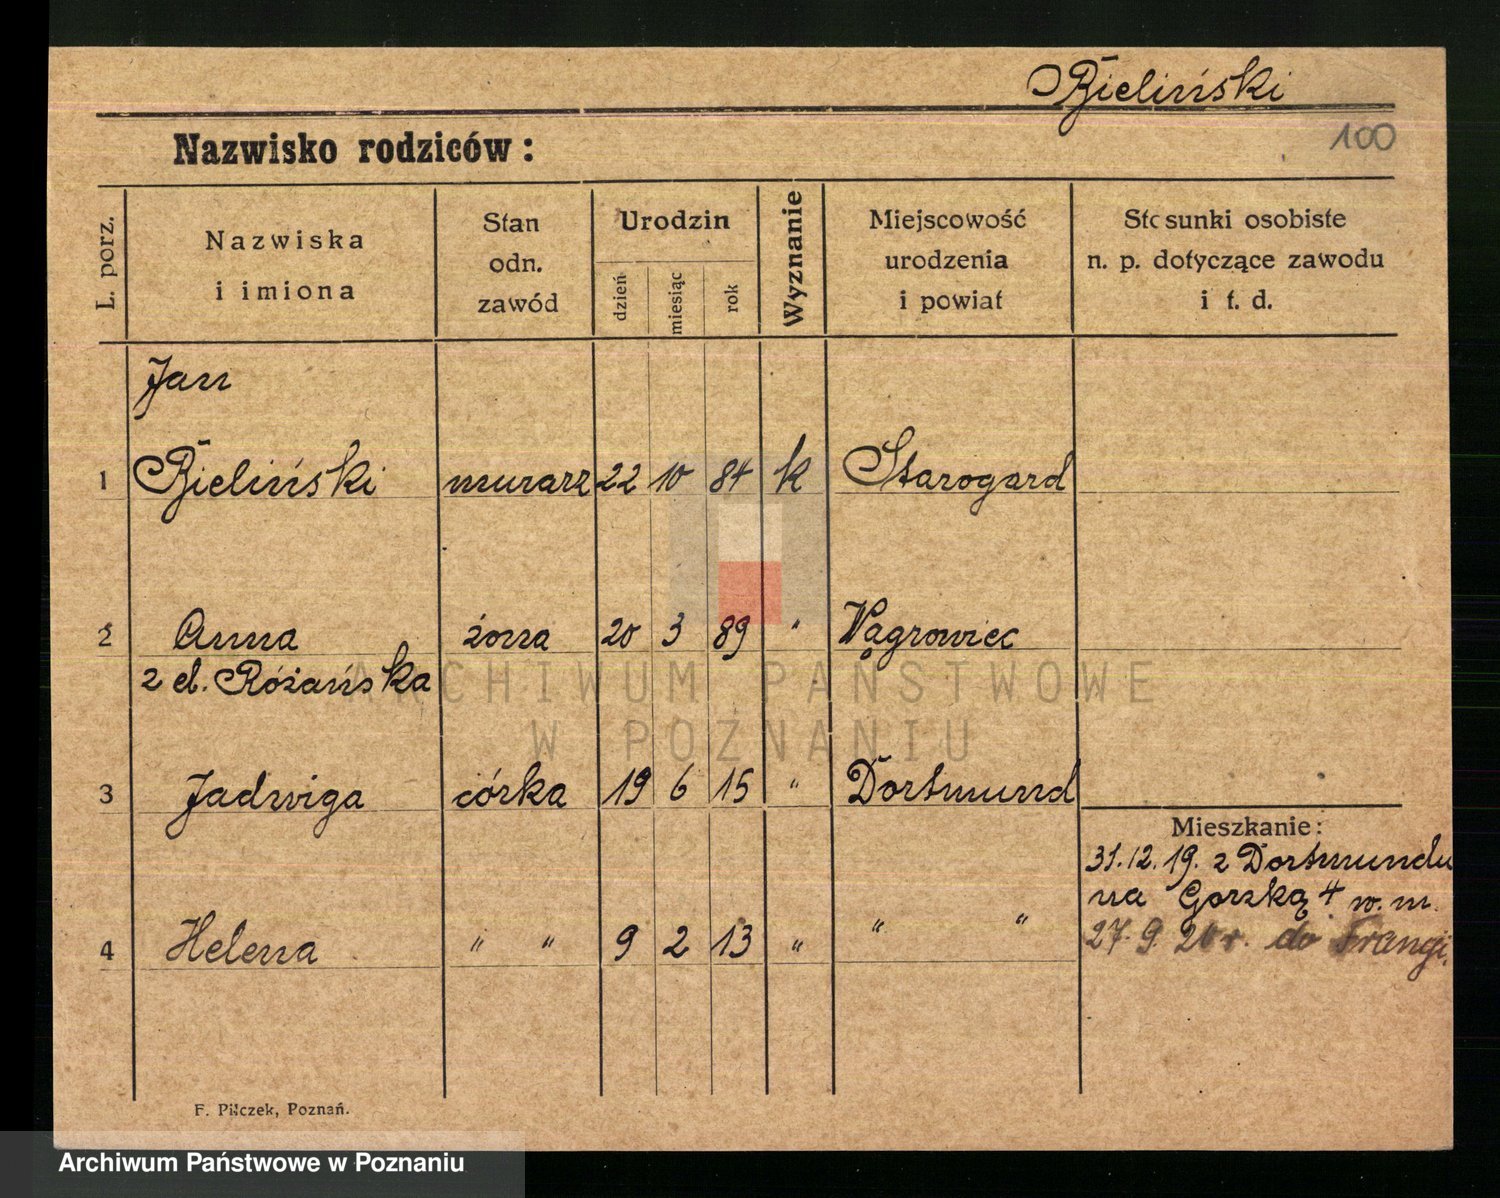 Bieliński
100
Nazwisko rodziców:
L. porz.
Nazwiska
i imiona
Stan
odn.
zawód
Urodzin
dzień
miesiąc
rok
Wyznanie
Miejscowość
urodzenia
i powiat
Stosunki osobiste
n. p. dotyczące zawodu
i t. d.
Jan
1 Bieliński murarz 22 10 84 k Starogard
2 Anna żona 20 3 89 " Wągrowiec
z d. Różańska
ARCHIWUM PAŃSTWOWE
W POZNANIU
3 Jadwiga córka 19 6 15 " Dortmund
Mieszkanie:
31.12.19. z Dortmundu
na Gorzką 4 w. m.
4 Helena " " 9 2 13 " " "
27.9.20 r. do Francji.
F. Pilczek, Poznań.
Archiwum Państwowe w Poznaniu